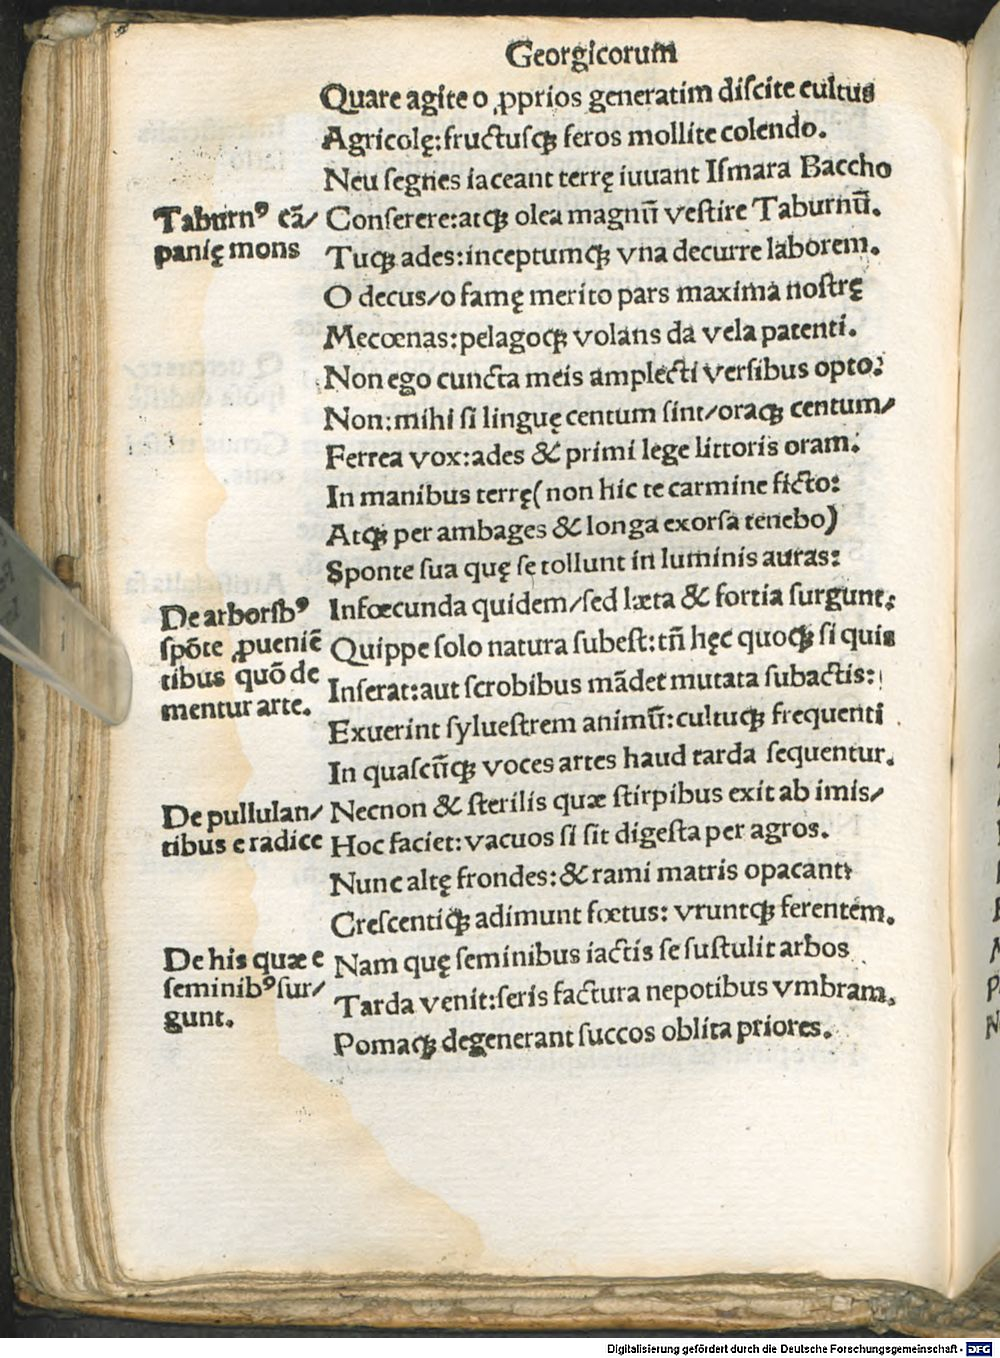 Georgicorum
Quare agite o ꝓprios generatim diſcite cultus
Agricolę:fructuſqꝫ feros mollite colendo.
Neu ſegnes iaceant terrę iuuant Iſmara Baccho
Taburnꝰ cā/
panię mons
Conſerere:atqꝫ olea magnū veſtire Taburnū.
Tuqꝫ ades:inceptumqꝫ vna decurre laborem.
O decus/o famę merito pars maxima noſtrę
Mecœnas:pelagoqꝫ volans da vela patenti.
Non ego cuncta meis amplecti verſibus opto:
Non:mihi ſi linguę centum ſint/oraqꝫ centum/
Ferrea vox:ades & primi lege littoris oram:
In manibus terrę(non hic te carmine ficto:
Atqꝫ per ambages & longa exorſa tenebo)
Sponte ſua quę ſe tollunt in luminis auras:
De arboribꝰ
ſpōte ꝓueniē
tibus quō de
mentur arte.
Infœcunda quidem/ſed læta & fortia ſurgunt:
Quippe ſolo natura ſubeſt:tn̄ hęc quoqꝫ ſi quis
Inſerat:aut ſcrobibus mādet mutata ſubactis:
Exuerint ſylueſtrem animū:cultuqꝫ frequenti
In quaſcūqꝫ voces artes haud tarda ſequentur.
De pullulan/
tibus e radice
Necnon & ſterilis quæ ſtirpibus exit ab imis/
Hoc faciet:vacuos ſi ſit digeſta per agros.
Nunc altę frondes:& rami matris opacant:
Creſcentiqꝫ adimunt fœtus: vruntqꝫ ferentem.
De his quæ e
ſeminibꝰ ſur/
gunt.
Nam quę ſeminibus iactis ſe ſuſtulit arbos
Tarda venit:ſeris factura nepotibus vmbram.
Pomaqꝫ degenerant ſuccos oblita priores.
Digitalisierung gefördert durch die Deutsche Forschungsgemeinschaft - DFG